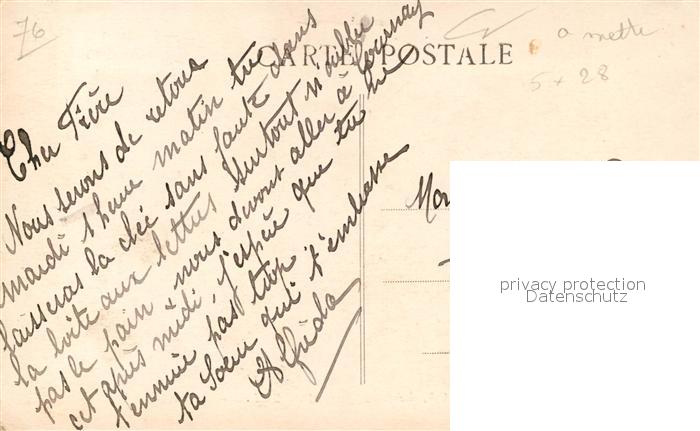 76
CARTE POSTALE
a mette
5 + 28
Cher Frère
Nous serons de retour
mardi 1 heure matin tu
laisseras la clée sans faute dans
la boite aux lettres surtout n'oublie
pas le pain + nous devont aller à Tournay
cet après midi j'espère que tu ne
t'ennuie pas trop
ta Soeur qui t'embrasse
Alfréda
privacy protection
Datenschutz